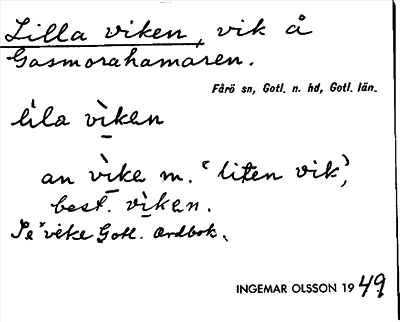 Lilla viken, vik å
Gasmorahamaren.
Fårö sn, Gotl. n. hd, Gotl. län.
lìla vìken
an vìke m. "liten vik",
best. vìken.
Se "veke Gotl. ordbok.
INGEMAR OLSSON 1949